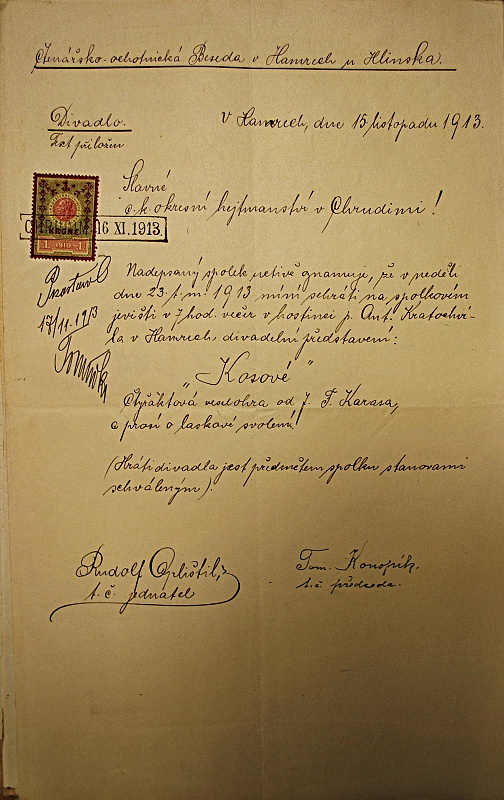 Čtenářsko-ochotnická Beseda v Hamrech u Hlinska.
Divadlo.
Text přiložen
V Hamrech, dne 15 listopadu 1913.
Slavné
c. k. okresní hejtmanství v Chrudimi!
1
KRONE
1 1910 1
16 XI. 1913
17/11. 1913
Nadepsaný spolek uctivě oznamuje, že v neděli
dne 23. t. m. 1913 míní sehráti na spolkovém
jevišti v 7 hod. večír v hostinci p. Ant. Kratochví-
la v Hamrech, divadelní představení:
„Kosové"
Čtyřaktová veselohra od J. F. Karasa,
a prosí o laskavé svolení!
(Hráti divadla jest předmětem spolku stanovami
schváleným).
Rudolf
t. č. jednatel
Tom. Konopík.
t. č. předseda.